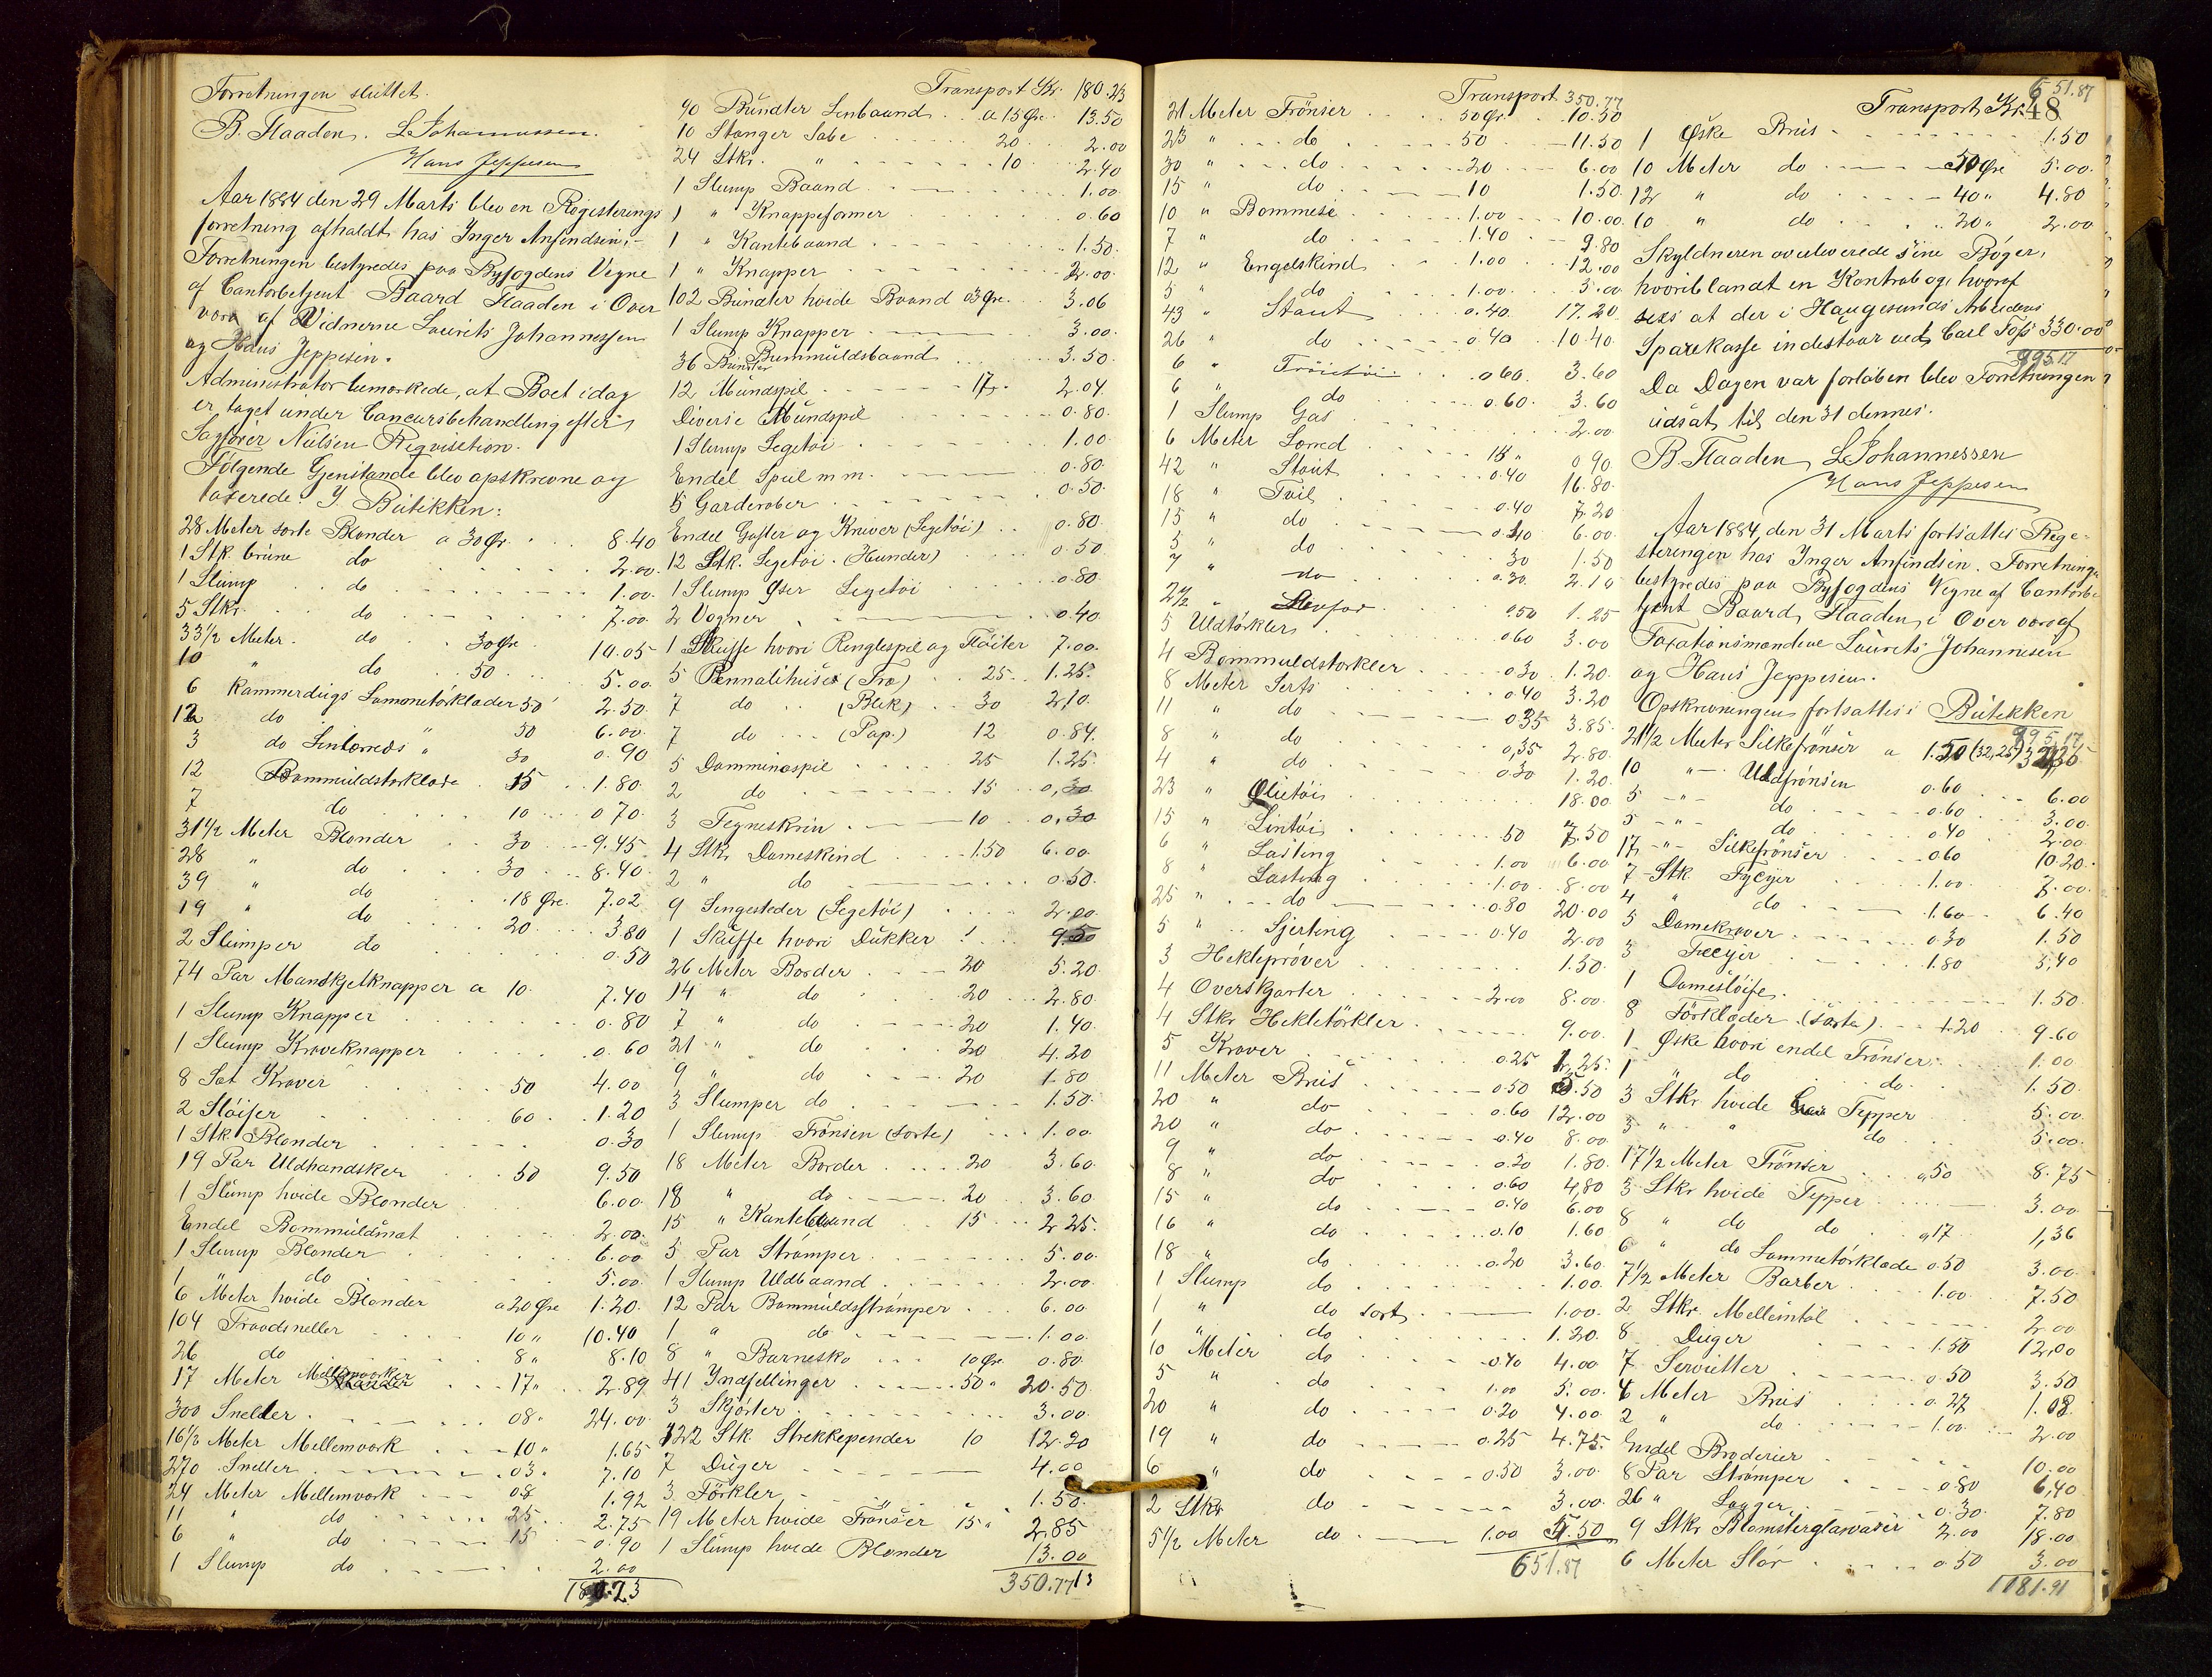 Forretningen sluttet.
B. Flaaden. L Johannessen.
Hans Jeppesen
Aar 1884 den 29 Marts blev en Registerings
forretning afholdt hos Inger Anfindsen.-
Forretningen bestyredes paa Byfogdens Vegne
af Cantorbetjent Baard Flaaden i Over
vær af Vidnerne Laurits Johannessen
og Hans Jeppesen.
Administrator bemærkede, at Boet idag
er taget under Concursbehandling efter
Sagfører Nielsen Reqvisition.
Følgende Gjenstande blev opskrevne og
taxerede. I Butikken:
28 Meter sorte Blonder a 30 Ør. 8.40
1 Stk brune do 2.00.
1 Slump do 1.00.
5 Stkr. do 7.00
33 1/2 Meter. do 30 Øre. 10.05
10 " do 50 5.00
6 Kammerdugs Lommetørklæder 50 2.50.
12 do " 50 6.00.
3 do Linlærreds " 30 0.90
12 Bommuldstørklæde 15 1.80.
7 do 10 0 70.
31 1/2 Meter Blonder 30 9.45
28 " do 30 8.40.
39 " do 18 Øre. 7.02
19 " do 20 3.80
2 Slumper do 0.50
74 Par Manskjetknapper a 10. 7.40
1 Slump Knapper 0.80
1 Slump Kraveknapper 0.60
8 Sæt Kraver 50 4.00
2 Sløifer 60 1.20
1 Stk Blonder 0.30
19 Par Uldhandsker 50 9.50
1 Slump hvide Blonder 6.00
Endel Bommuldsnat 2.00.
1 Slump Blonder 6.00
1 " do 5.00.
6 Meter hvide Blonder a 20 Øre 1.20.
104 Traadsneller 10 " 10.40
26 do 8 " 8.10
17 Meter Mellemværker 17 " 2.89
300 Sneller 08 " 24.00
16 1/2 Meter Mellemværk 10 " 1.65
270 Sneller 03 " 7.10
24 Meter Mellemværk 08 1.92
11 " do 25 2.75
6 " do 15 0.90
1 Slump do 2.00
180.23
Transport Kr. 180.23
90 Bundter Linbaand a 15 Øre. 13.50
10 Stanger Sæbe 20 2.00
24 Stkr. " 10 2.40
1 Slump Baand 1.00
1 " Knappeformer 0.60
1 " Kantebaand 1.50.
1 " Knapper 2.00.
102 Bundter hvide Baand a 3 Øre. 3.06
1 Slump Knapper 3.00.
36 Bundter Bummuldsbaand 3.50.
12 Mundspil 17. 2.04
Diverse Mundspil 0.80.
1 Slump Legetøi 1.00
Endel Spil m m. 0.80.
5 Garderober 0.50.
Endel Gafler og Kniver (Legetøi) 0.80
12 Stk. Legetøi. (Hunder) 0.50
1 Slump Øser Legetøi 0.80
2 Vogner 0.40
1 Skuffe hvori Ringlespil og Fløiter 7.00.
5 Pennalhuser (Træ) 25 1.25.
7 do (Blik) 30 2.10.
7 do (Pap.) 12 0.84.
5 Dominospil 25 1.25.
2 do 15 0,30
3 Tegneskrin 10 0.30
4 Stkr Dameskind 1.50 6.00
2 " do 0.50.
9 Sengesteder (Legetøi) 2.00.
1 Skuffe hvori Dukker 9.50
26 Meter Border 20 5.20.
14 " do 20 2.80.
7 " do 20 1.40.
21 " do 20 4.20
9 " do 20 1.80
3 Slumper do 1.50.
1 Slump Frønsen (sorte) 1.00
18 Meter Border 20 3.60.
18 " do 20 3.60.
15 " Kantebaand 15 2 25.
5 Par Strømper 5.00.
1 Slump Uldbaand 2.00.
12 Par Bommuldsstrømper 6.00
1 " do 1.00.
8 " Barnesko 10 Øre 0.80.
41 Indfellinger 50 " 20.50
3 Skjørter 3.00
122 Stk. Strekkepender 10 12.20
7 Duger 4.00
3 Förkler 1.50.
19 Meter hvide Frønser 15 " 2.85
1 Slump hvide Blonder 13.00
350.77
Transport 350.77
21 Meter Frønser 50 Ør. 10.50
23 " do 50 11.50
30 " do 20 6.00
15 " do 10 1.50
10 " Bommesi 1.00 10.00
7 " do 1.40 9.80
12 " Engelskind 1.00 12.00
5 do 1.00 5.00
43 " Stout 0.40 17.20
26 " do 0.40 10.40.
6 " Trøietøi 0.60. 3.60
6 " do 0.60. 3.60
1 Slump Gas 2.00
6 Meter Lærred 15 " 0 90.
42 " Stout 0.40 16.80.
18 " Tvil 0.40 7.20
15 " do 0.40 6.00.
5 " do 30 1.50
7 " do 0.30. 2.10
2 1/2 " 0.50 1.25
5 Uldtørkler 0.60 3.00
4 Bommuldstørkler 0.30 1.20.
8 Meter Serts 0.40 3.20
11 " do 0.35 3.85.
8 " do 0,35 2.80
4 " do 0.30 1.20.
23 " Olietøi 18.00.
15 " Lintøi 50 7.50
6 " Lasting 1.00 6.00
8 " Lasting 1.00 8.00
25 " do 0.80 20.00
5 " Sjerting 0.40 2.00
3 Hekleprøver 1.50.
4 Overskjørter 2.00 8.00.
4 Stkr Hekletørkler 9.00.
5 Kraver 0.25 1.25.
11 Meter Brus 0.50 5.50
20 " do 0.60 12.00
20 " do 0.40 8.00
9 " do 0.20 1.80.
8 " do 0.60 4,80
15 " do 0.40 6.00
16 " do 0.10 1.60
18 " do 0.20 3.60.
1 Slump do 1.00.
1 " do sort 1.00.
1 " do 1.20.
10 Meter do 0.40 4.00
5 " do 1.00 5.00.
20 " do 0.20 4.00
19 " do 0.25 4.75.
6 " do 0.50 3.00.
2 Stkr do 3.00.
5 1/2 Meter do 1.00 5.50
651.87
651.87
Transport Kr. 48
1 Øske Brus 1.50
10 Meter do 50 Øre 5.00.
12 " do 40 " 4.80
10 " do 20 " 2.00
Skyldneren overleverede sine Bøger,
hvoriblandt en Kontrabog, hvoraf
sees at der i Haugesunds Arbeideres
Sparekasse indestaar ved Carl Foss 330.00
995.17
Da Dagen var forløben blev Forretningen
udsat til den 31 dennes.
B. Flaaden, L Johannessen
Hans Jeppesen
Aar 1884, den 31 Marts fortsattes Rege=
steringen hos Inger Anfindsen. Forretningen
bestyredes paa Byfogdens Vegne af Cantorbe
tjent Baard Flaaden, i Overvær af
Taxationsmændene Laurits Johannesen
og Hans Jeppesen.
Opskrivningen fortsattes i Butikken
995.17
21 1/2 Meter Silkefrønser a 1.50 (32,25)
10 " Uldfrønsen 0.60 6.00
5 " do 0.60 3.00.
5 " do 0.40 2.00
17 " Silkefrønser 0.60 10.20.
7 Stk. Tyeyer 1.00 7.00.
4 " do 1.60 6.40
5 Damekraver 0.30 1.50
3 Tyeyer 1.80 5,40
1 Damesløife 1.50
8 Förklæder (sorte) 1.20 9.60
1 Øske hvori endel Frønser 1.00
1 " do do 1.50.
3 Stkr hvide Tepper 5.00.
3 " " do 5.00.
17 1/2 Meter Frønser a 50 8.75
3 Stkr hvide Tepper 3.00
8 " do do a 17 1,36
6 " do Lommetørklæde 0.50 3.00.
7 1/2 Meter Barber 1.00 7.50
2 Stkr. Mellemtøl 2.00
8 Duger 1.50 12,00
7 Servietter 0.50 3.50
4 Meter Brus 0.27 1.08
2 " do 1.00 2.00
Endel Broderier 10.00
8 Par Strømper 0.80 6,40
26 " Lauger 0.30 7.80
9 Stkr Blomsterglasvaser 2.00 18.00
6 Meter Slør 0.50 3.00
1181.91